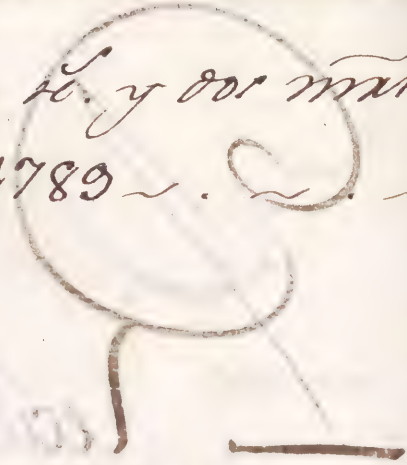 y dos mrã
1789